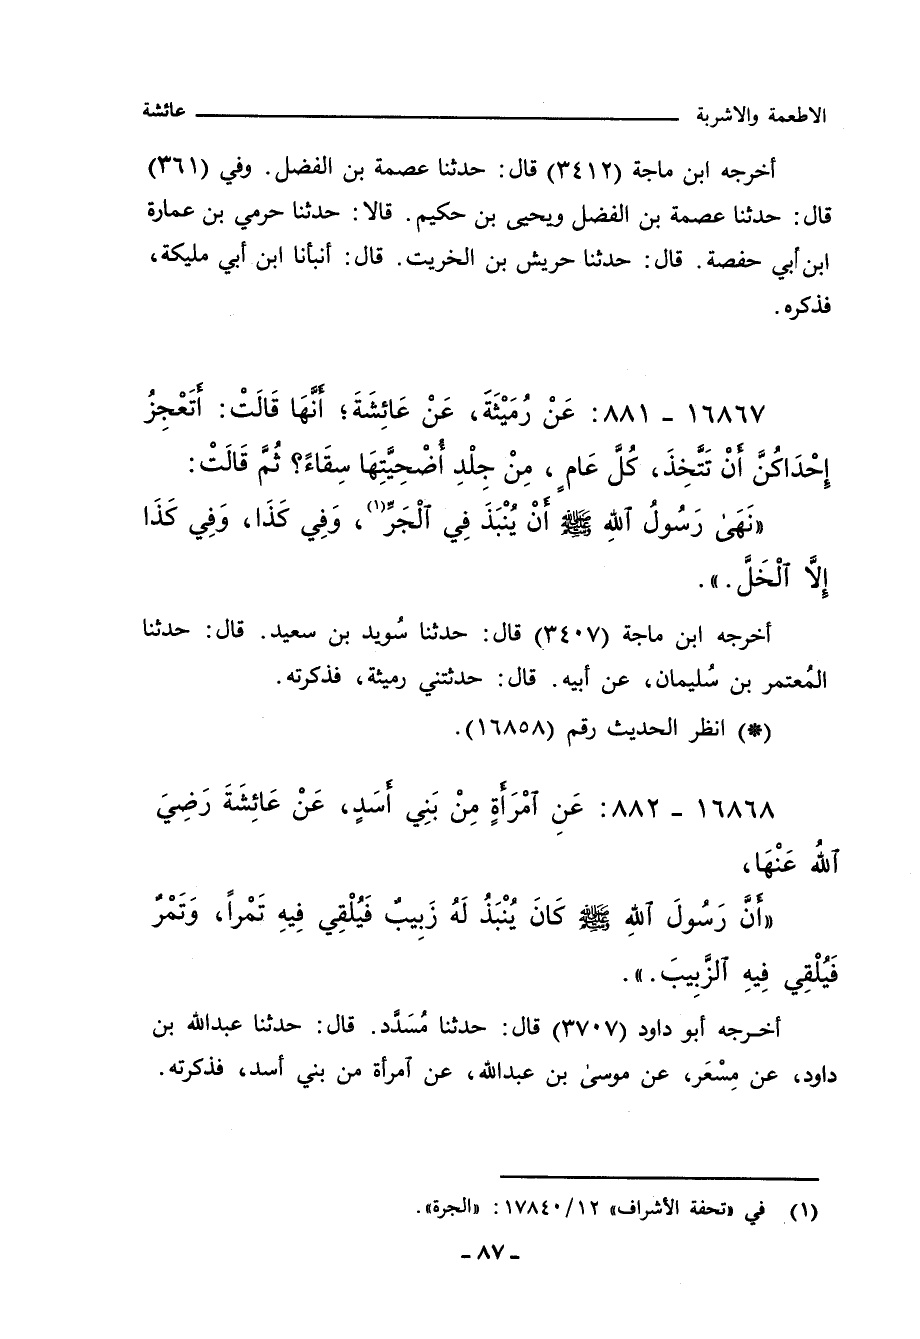 الاطعمة والاشربة ــــــــــــــــــــ عائشة
أخرجه ابن ماجة (٣٤١٢) قال: حدثنا عصمة بن الفضل. وفي (٣٦١)
قال: حدثنا عصمة بن الفضل ويحيى بن حكيم. قالا: حدثنا حرمي بن عمارة
ابن أبي حفصة. قال: حدثنا حريش بن الخريت. قال: أنبأنا ابن أبي مليكة،
فذكره.
١٦٨٦٧ ـ ٨٨١: عَنْ رُمَيْثَةَ، عَنْ عَائِشَةَ؛ أَنَّهَا قَالَتْ: أَتَعْجِزُ
إِحْدَاكُنَّ أَنْ تَتَّخِذَ، كُلَّ عَامٍ، مِنْ جِلْدِ أُضْحِيَّتِهَا سِقَاءً؟ ثُمَّ قَالَتْ:
«نَهَىٰ رَسُولُ ٱللهِ ﷺ أَنْ يُنْبَذَ فِي ٱلْجَرِّ(١)، وَفِي كَذَا، وَفِي كَذَا
إِلَّا ٱلْخَلَّ.».
أخرجه ابن ماجة (٣٤٠٧) قال: حدثنا سُويد بن سعيد. قال: حدثنا
المُعتمر بن سُليمان، عن أبيه. قال: حدثتني رميثة، فذكرته.
(*) انظر الحديث رقم (١٦٨٥٨).
١٦٨٦٨ ـ ٨٨٢: عَنِ ٱمْرَأَةٍ مِنْ بَنِي أَسَدٍ، عَنْ عَائِشَةَ رَضِيَ
ٱللهُ عَنْهَا،
«أَنَّ رَسُولَ ٱللهِ ﷺ كَانَ يُنْبَذُ لَهُ زَبِيبٌ فَيُلْقِي فِيهِ تَمْراً، وَتَمْرٌ
فَيُلْقِي فِيهِ ٱلزَّبِيبَ.».
أخرجه أبو داود (٣٧٠٧) قال: حدثنا مُسَدَّد. قال: حدثنا عبدالله بن
داود، عن مِسْعَر، عن موسىٰ بن عبدالله، عن ٱمرأة من بني أسد، فذكرته.
(١) في «تحفة الأشراف» ١٧٨٤٠/١٢: «الجرة».
ـ ٨٧ ـ